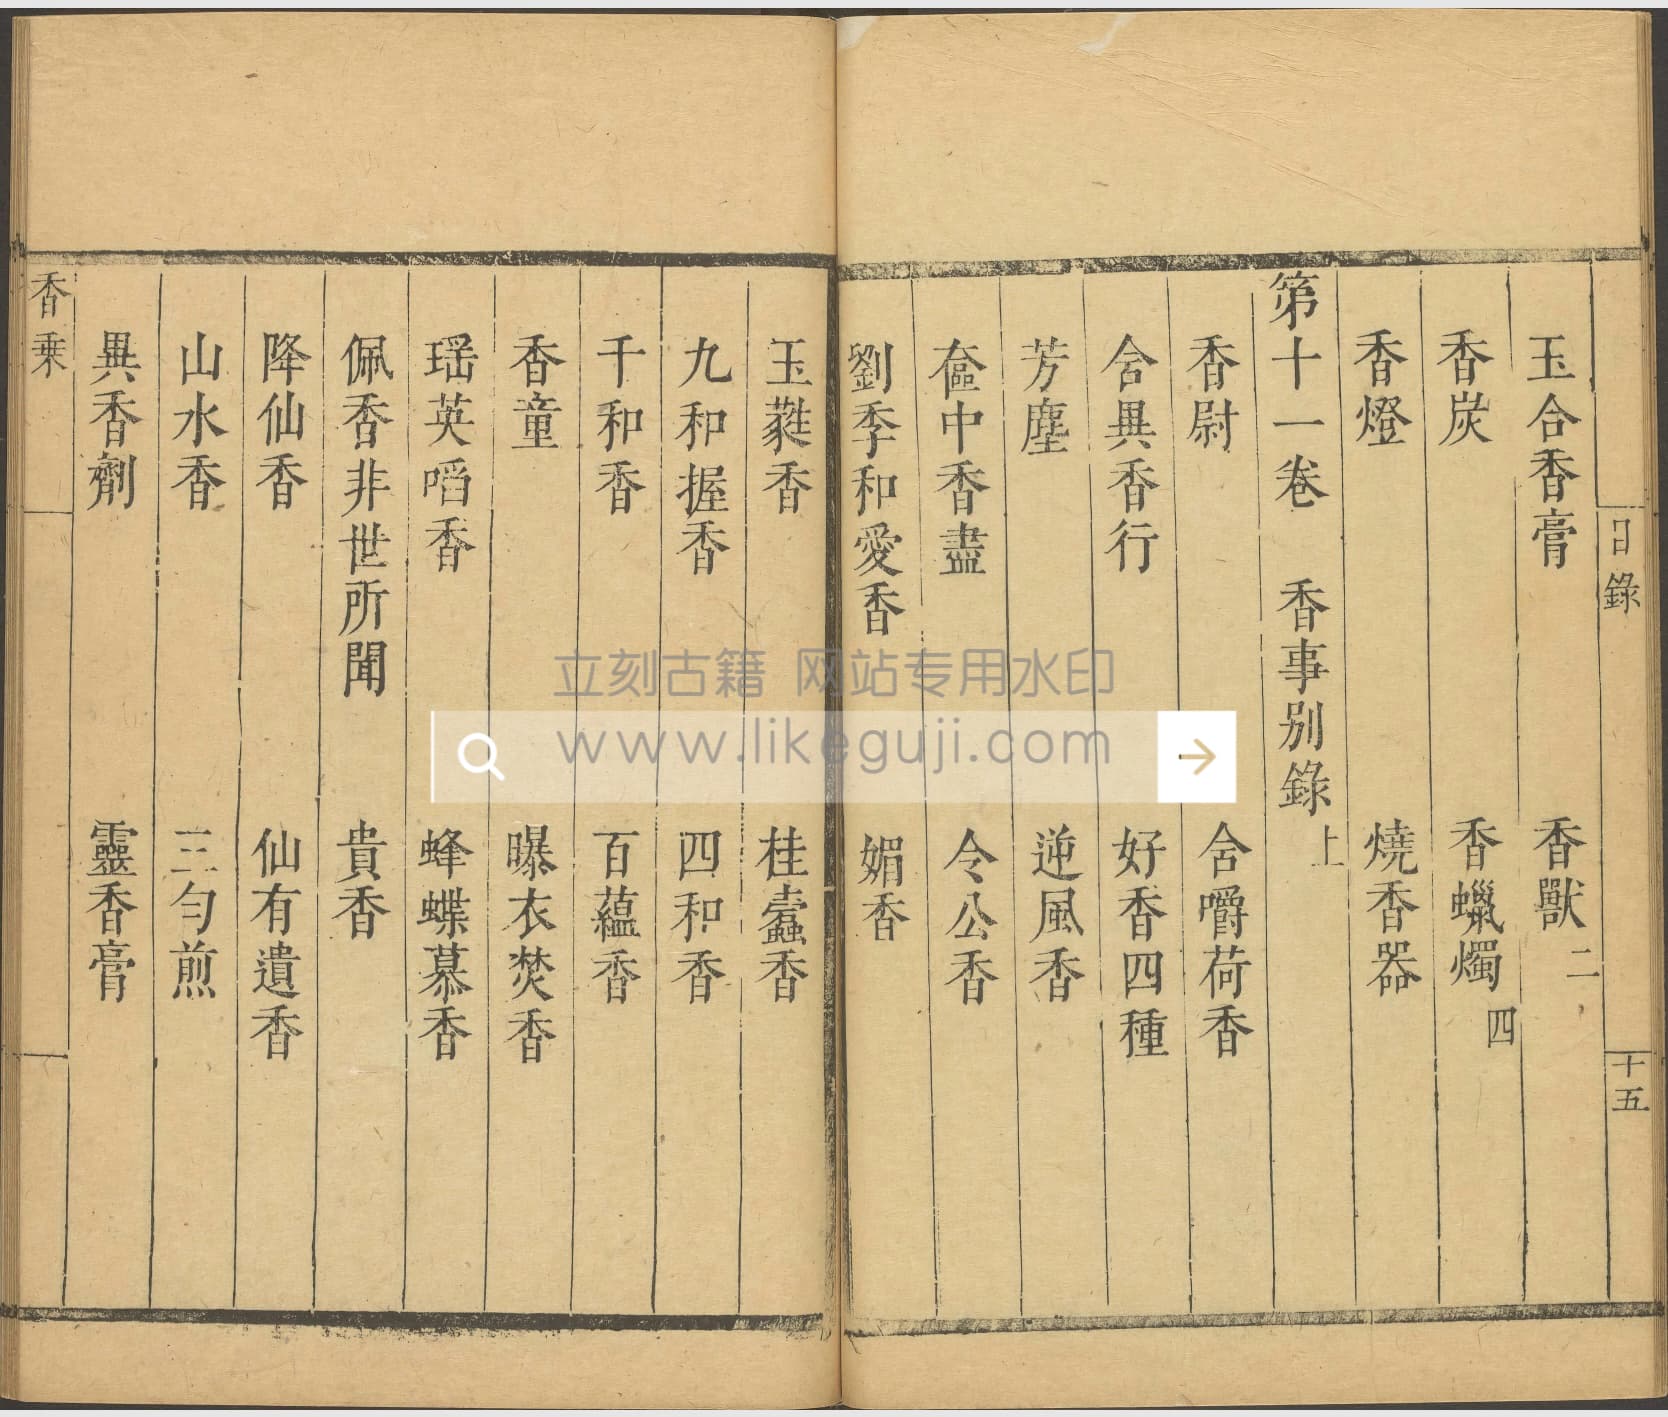 目錄 十五
玉合香膏 香獸二
香炭 香蠟燭四
香燈 燒香器
第十一卷 香事别錄上
香尉 含嚼荷香
含異香行 好香四種
芳塵 逆風香
奩中香盡 令公香
劉季和愛香 媚香
玉蕤香 桂蠹香
九和握香 四和香
千和香 百蘊香
香童 曝衣焚香
瑶英啗香 蜂蝶慕香
佩香非世所聞 貴香
降仙香 仙有遺香
山水香 三勻煎
異香劑 靈香膏
香乗
立刻古籍 网站专用水印
www.likeguji.com